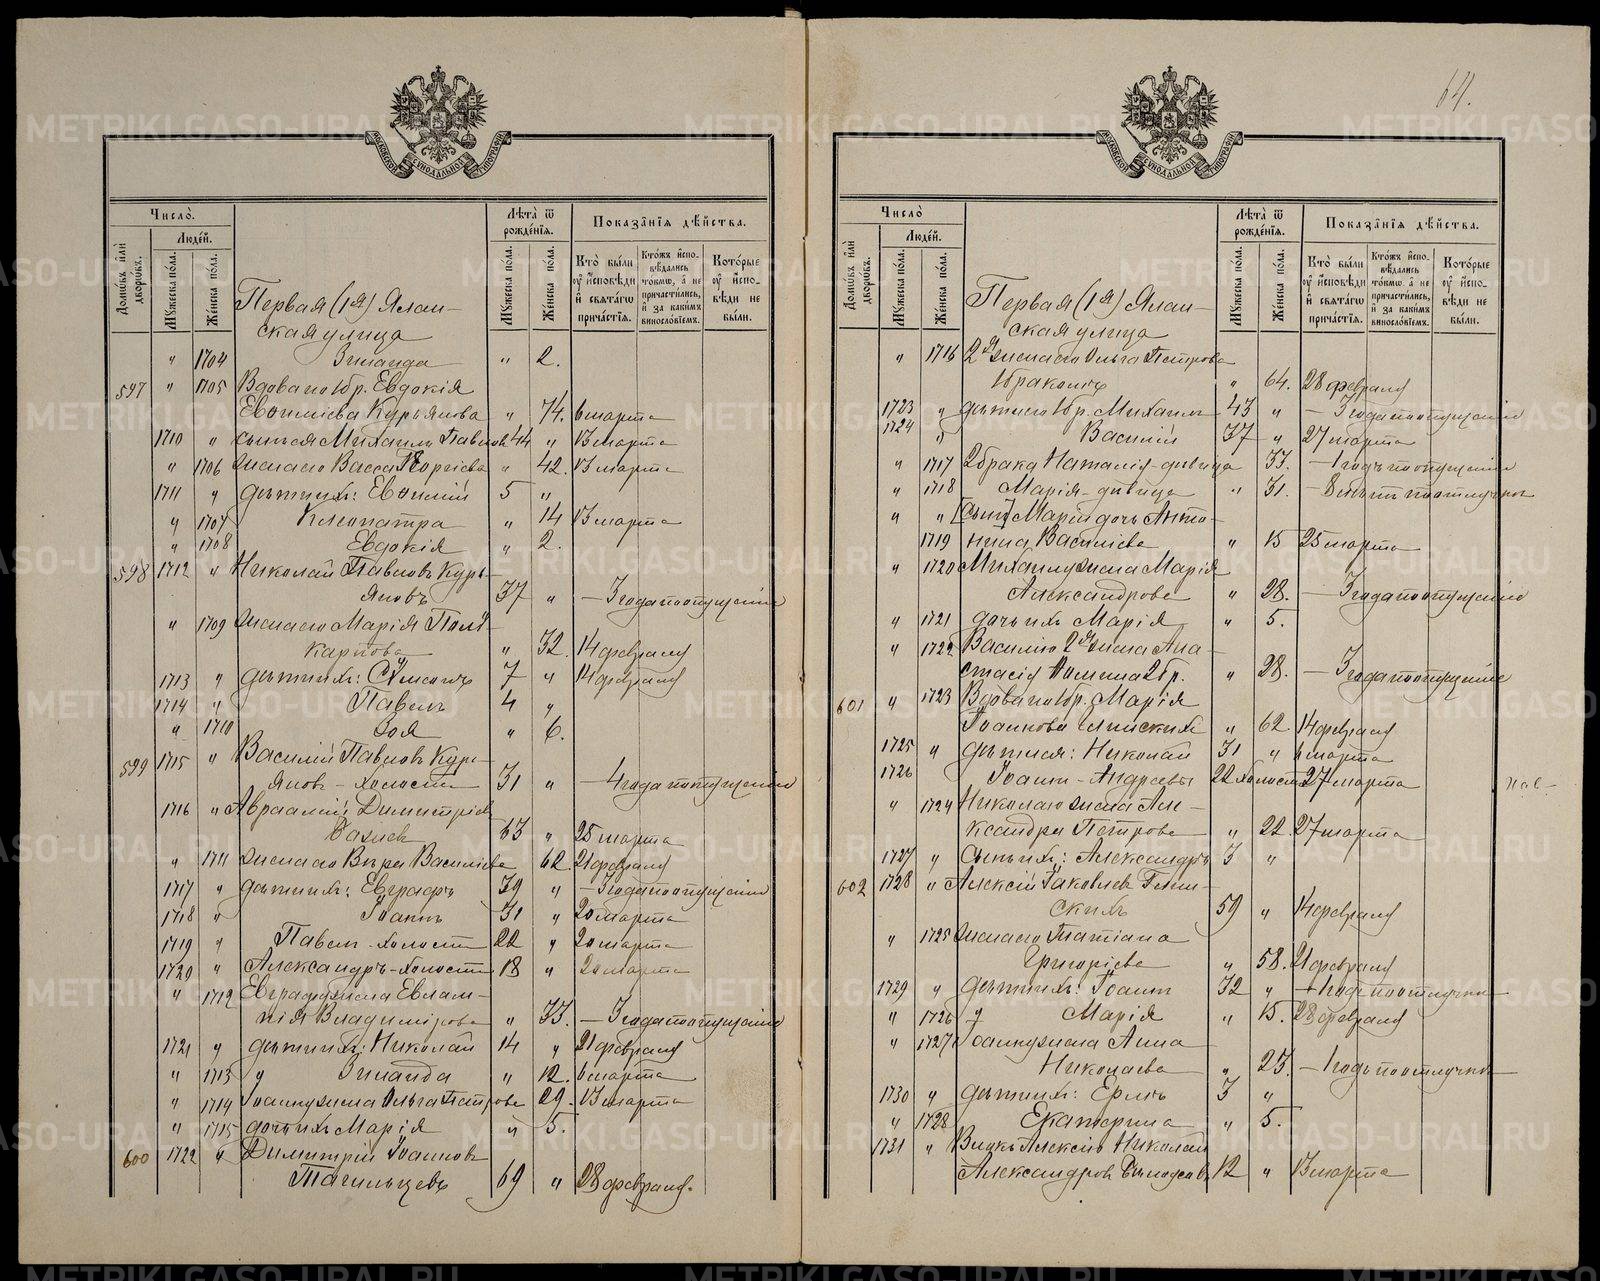 64.
МОСКОВСКОЙ СѴНОДАЛЬНОЙ ТИПОГРАФІИ
Число̀.
Людей.
Домѡвъ и҆лѝ дворѡвъ.
Мꙋжеска по́ла.
Же́нска по́ла.
Лѣта̀ ѿ рожде́нїѧ.
Мꙋжеска по́ла.
Же́нска по́ла.
Показа̑нїѧ дѣ́йства.
Кто̀ бы́ли оу҆ и҆сповѣди и҆ свѧта́гѡ прича́стїѧ.
Кто́жъ и҆спо-вѣдались то́кмѡ, а҆ не причасти́лись, и҆ за каки́мъ винослові́емъ.
Кото́рые оу҆ и҆спо-вѣди не бы́ли.
Первая (1я) Ялан-
ская улица
" 1704 Зинаида " 2.
597 " 1705 Вдова по 1 бр. Евдокія
Евѳиміева Курьянова " 74. 6 марта
1710 " сынъ ея Михаилъ Павловъ 44 " 13 марта
" 1706 жена его Васса Георгіева " 42. 13 марта
1711 " дѣти ихъ: Евѳимій 5 "
" 1707 Клеопатра " 14 13 марта
" 1708 Евдокія " 2.
598 1712 " Николай Павловъ Курь-
яновъ 37 " – 3 года по опущенію
" 1709 жена его Марія Поли-
карпова " 32. 14 февраля
1713 " дѣти ихъ: Сѵмеонъ 7 " 14 февраля
1714 " Павелъ 4 "
" 1710 Зоя " 6.
599 1715 " Василій Павловъ Курь-
яновъ - холостъ 31 " – 4 года по опущенію
1716 " Авраамій Димитріев
63 " 25 марта
" 1711 жена его Вѣра Василіева " 62. 21 февраля
1717 " дѣти ихъ: Евграфъ 39 " – 3 года по опущенію
1718 " Іоаннъ 31 " 20 марта
1719 " Павелъ - холостъ 22 " 20 марта
1720 " Александръ - холостъ 18 " 20 марта
" 1712 Евграфа жена Евлам-
пія Владимірова " 33. – 3 года по опущенію
1721 " дѣти ихъ: Николай 14 " 21 февраля
" 1713 " Зинаида " 12. 6 марта
" 1714 Іоанну жена Ольга Петрова 29. 13 марта
" 1715 дочь ихъ Марія " 5.
600 1722 " Димитрій Іоанновъ
Тагильцевъ 69 " 28 февраля.
Число̀
Людей.
Домѡвъ и҆лѝ дворѡвъ.
Мꙋжеска по́ла.
Же́нска по́ла.
Лѣта̀ ѿ рожде́нїѧ.
Мꙋжеска по́ла.
Же́нска по́ла.
Показа̑нїѧ дѣ́йства.
Кто̀ бы́ли оу҆ и҆сповѣди и҆ свѧта́гѡ прича́стїѧ.
Кто́жъ и҆спо-вѣдались то́кмѡ, а҆ не причасти́лись, и҆ за каки́мъ винослові́емъ.
Кото́рые оу҆ и҆спо-вѣди не бы́ли.
Первая (1я) Ялан-
ская улица
" 1716 2я жена его Ольга Петрова
1 бракомъ " 64. 28 февраля
1723 " дѣти его 1 бр. Михаилъ 43 " – 3 года по опущенію
1724 " Василій 37 " 27 марта
" 1717 2 брака Наталія - дѣвица 33. – 1 годъ по опущенію
" 1718 Марія - дѣвица " 31. – 8 лѣтъ по отлучкѣ
" " Маріи дочь Анто-
1719 нина Василіева " 15 25 марта
" 1720 Михаилу жена Марія
Александрова " 28. – 3 года по опущенію
" 1721 дочь ихъ Марія " 5.
" 1722 Василію 2я жена Ана-
стасія 2 бр. " 28. – 3 года по опущенію
601 " 1723 Вдова по 1 бр. Марія
Іоаннова " 62 14 февраля
1725 " дѣти ея: Николай 31 " 6 марта
1726 Іоаннъ - Андреевы 22 холостъ 27 марта
" 1724 Николаю жена Але-
ксандра Петрова " 22. 27 марта
1727 " Сынъ ихъ: Александръ 3 "
602 1728 " Алексій Іаковлев
скихъ 59 " 14 февраля
" 1725 жена его Татіана
Григоріева " 58. 21 февраля
1729 " дѣти ихъ: Іоаннъ 32 " – 1 годъ по отлучкѣ
" 1726 " Марія " 15. 28 февраля
" 1727 Іоанну жена Анна
Николаева " 23. – 1 годъ по отлучкѣ
1730 " дѣти ихъ: 3 "
" 1728 Екатерина " 5.
1731 " Внукъ Алексію Николай
Александров 12 " 13 марта
METRIKI.GASO-URAL.RU